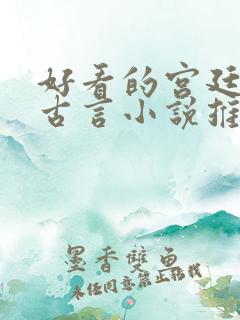 好看的宫廷
古言小说推
墨香雙鱼
未经同意禁止转载